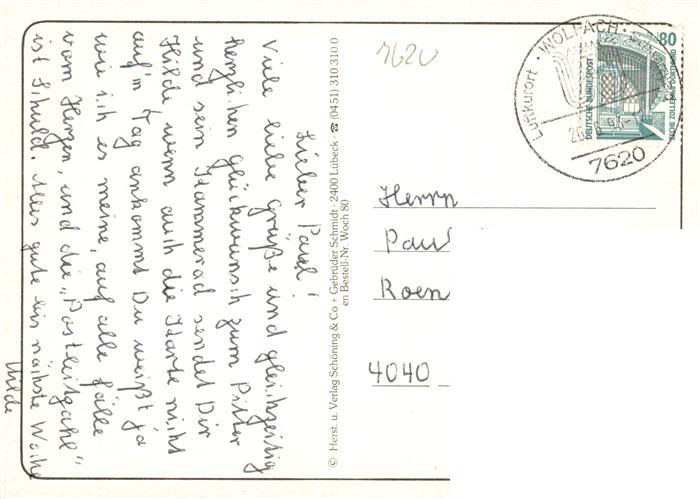 Lieber Paul!
Viele liebe Grüße und gleichzeitig
herzlichen Glückwunsch zum Pitter
und sein Kammerad sendet Dir
Hilde wenn auch die Karte nicht
auf'n Tag ankommt Du weißt ja
wie ich es meine, auf alle Fälle
vom Herzen, und die „Postleitzahl"
ist Schuld. Alles gute bis nächste Woche
Hilde
© Herst. u. Verlag Schöning & Co + Gebrüder Schmidt · 2400 Lübeck · ☎ (0451) 310 310 0
en Bestell-Nr. Woch 80
7620
Luftkurort · WOLFACH ·
7620
80
DEUTSCHE BUNDESPOST
ZECHE ZOLLERN II DORTMUND
Herrn
Paul
Roen
4040